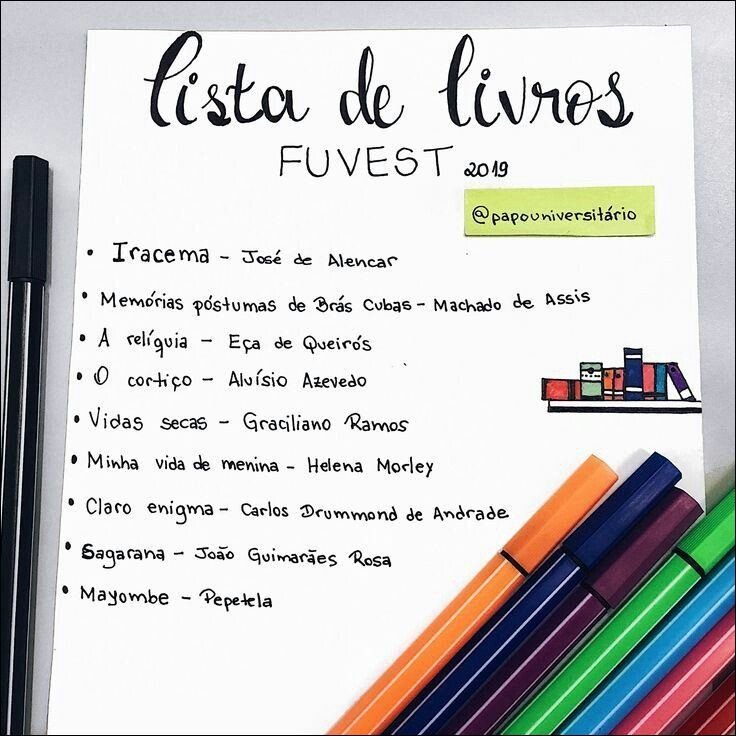 lista de livros
FUVEST 2019
@papouniversitário
• Iracema - José de Alencar
• Memórias póstumas de Brás Cubas - Machado de Assis
• A relíquia - Eça de Queirós
• O cortiço - Aluísio Azevedo
• Vidas secas - Graciliano Ramos
• Minha vida de menina - Helena Morley
• Claro enigma - Carlos Drummond de Andrade
• Sagarana - João Guimarães Rosa
• Mayombe - Pepetela